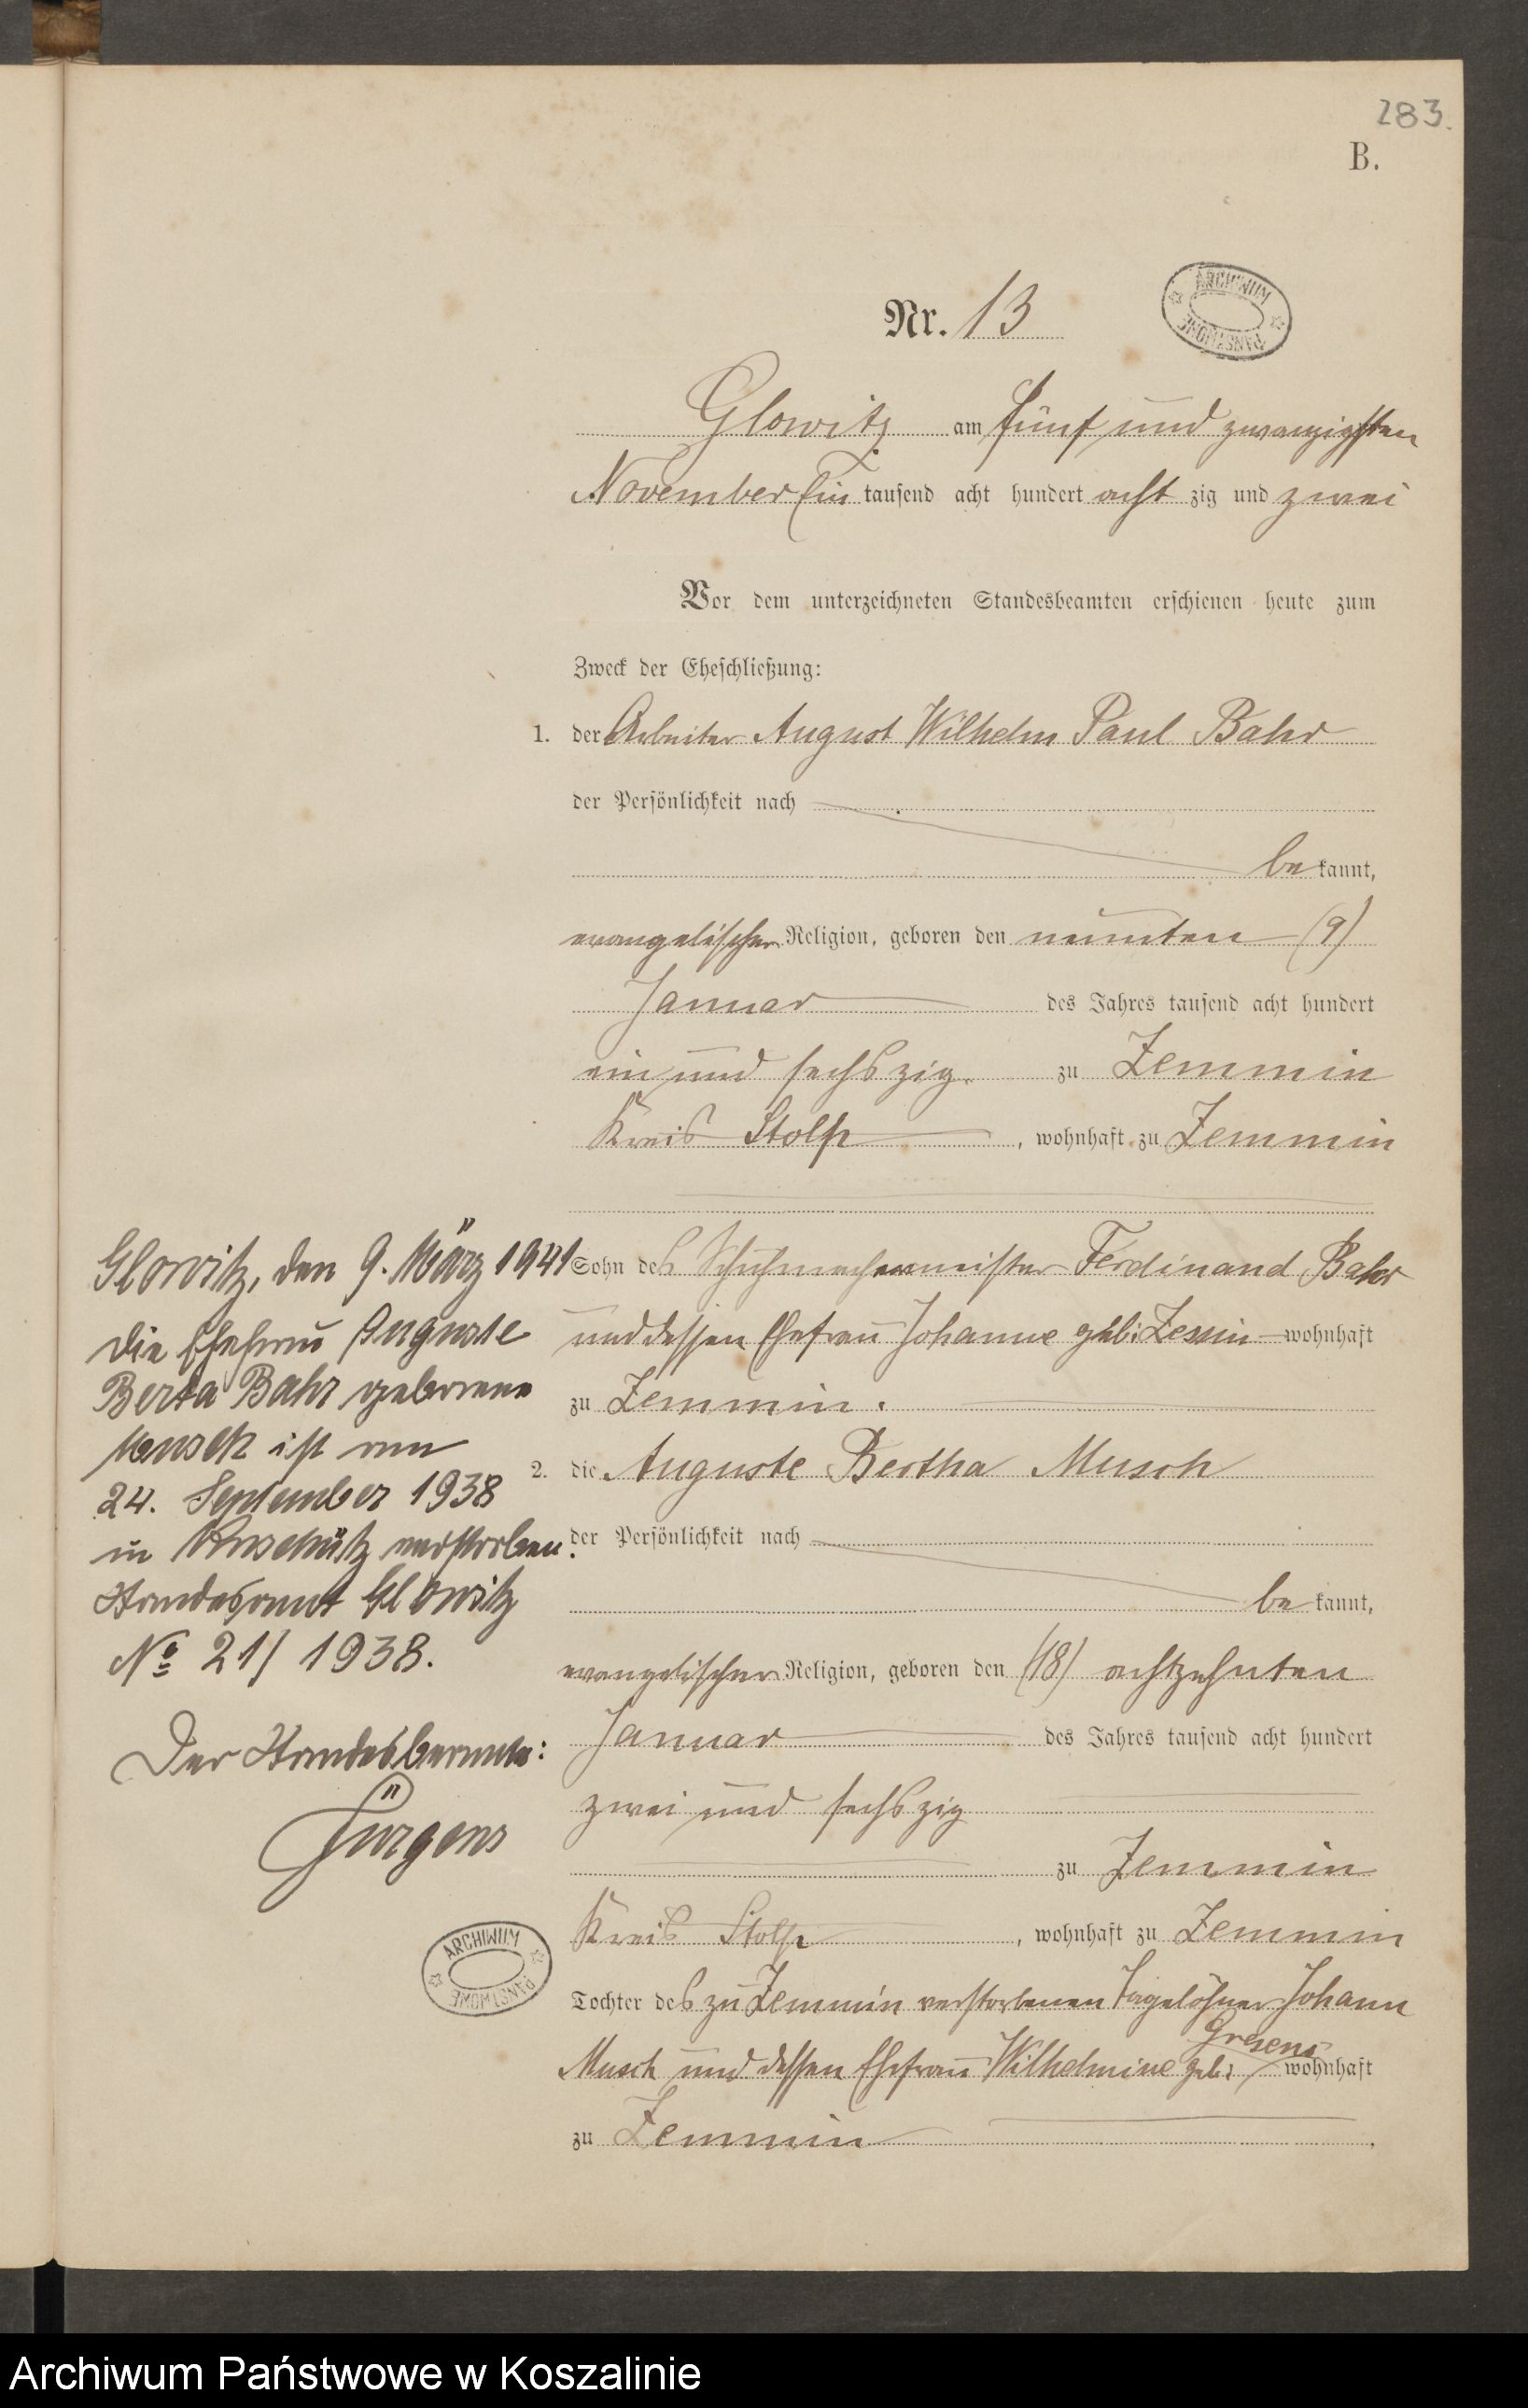 283.
B.
Nr. 13
ARCHIWUM PAŃSTWOWE
Glowitz am fünf und zwanzigsten
November Ein tausend acht hundert acht zig und zwei
Vor dem unterzeichneten Standesbeamten erschienen heute zum
Zweck der Eheschließung:
1. der Arbeiter August Wilhelm Paul Bahr
der Persönlichkeit nach
be kannt,
evangelischer Religion, geboren den neunten (9)
Januar des Jahres tausend acht hundert
ein und sechszig zu Zemmin
Kreis Stolp, wohnhaft zu Zemmin
Sohn des Schuhmachermeister Ferdinand Bahr
und dessen Ehefrau Johanne geb: Zessin wohnhaft
zu Zemmin.
2. die Auguste Bertha Musch
der Persönlichkeit nach
be kannt,
evangelischer Religion, geboren den (18) achtzehnten
Januar des Jahres tausend acht hundert
zwei und sechszig
zu Zemmin
Kreis Stolp, wohnhaft zu Zemmin
Tochter des zu Zemmin verstorbenen Tagelöhner Johann
Musch und dessen Ehefrau Wilhelmine geb: Gresens wohnhaft
zu Zemmin
Glowitz, den 9. März 1941
Die Ehefrau Auguste
Berta Bahr geborene
Musch ist am
24. September 1938
in verstorben.
Standesamt Glowitz
No 21/1938.
Der Standesbeamte:
Jürgens
ARCHIWUM PAŃSTWOWE
Archiwum Państwowe w Koszalinie